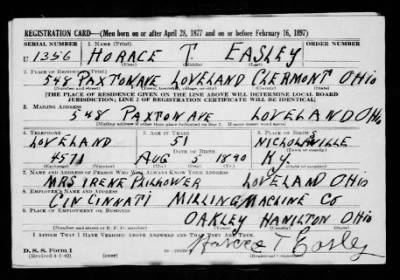 REGISTRATION CARD—(Men born on or after April 28, 1877 and on or before February 16, 1897)
SERIAL NUMBER 1. NAME (Print) ORDER NUMBER
U 1356 HORACE T. EASLEY
2. PLACE OF RESIDENCE (Print)
548 PAXTON AVE LOVELAND CLERMONT OHIO
(Number and street) (Town, township, village, or city) (County) (State)
[THE PLACE OF RESIDENCE GIVEN ON THE LINE ABOVE WILL DETERMINE LOCAL BOARD
JURISDICTION; LINE 2 OF REGISTRATION CERTIFICATE WILL BE IDENTICAL]
3. MAILING ADDRESS
548 PAXTON AVE LOVELAND OHIO
[Mailing address if other than place indicated on line 2. If same insert word same]
4. TELEPHONE 5. AGE IN YEARS 6. PLACE OF BIRTH
LOVELAND 51 NICHOLASVILLE
DATE OF BIRTH
4571 AUG 5 1890 KY.
(Exchange) (Number) (Mo.) (Day) (Yr.) (State or country)
7. NAME AND ADDRESS OF PERSON WHO WILL ALWAYS KNOW YOUR ADDRESS
MRS IRENE PHILHOWER LOVELAND OHIO
8. EMPLOYER'S NAME AND ADDRESS
CINCINNATI MILLING MACHINE CO
9. PLACE OF EMPLOYMENT OR BUSINESS
OAKLEY HAMILTON OHIO
(Number and street or R. F. D. number) (Town) (County) (State)
I AFFIRM THAT I HAVE VERIFIED ABOVE ANSWERS AND THAT THEY ARE TRUE.
D. S. S. Form 1
(Revised 4-1-42) Horace T. Easley